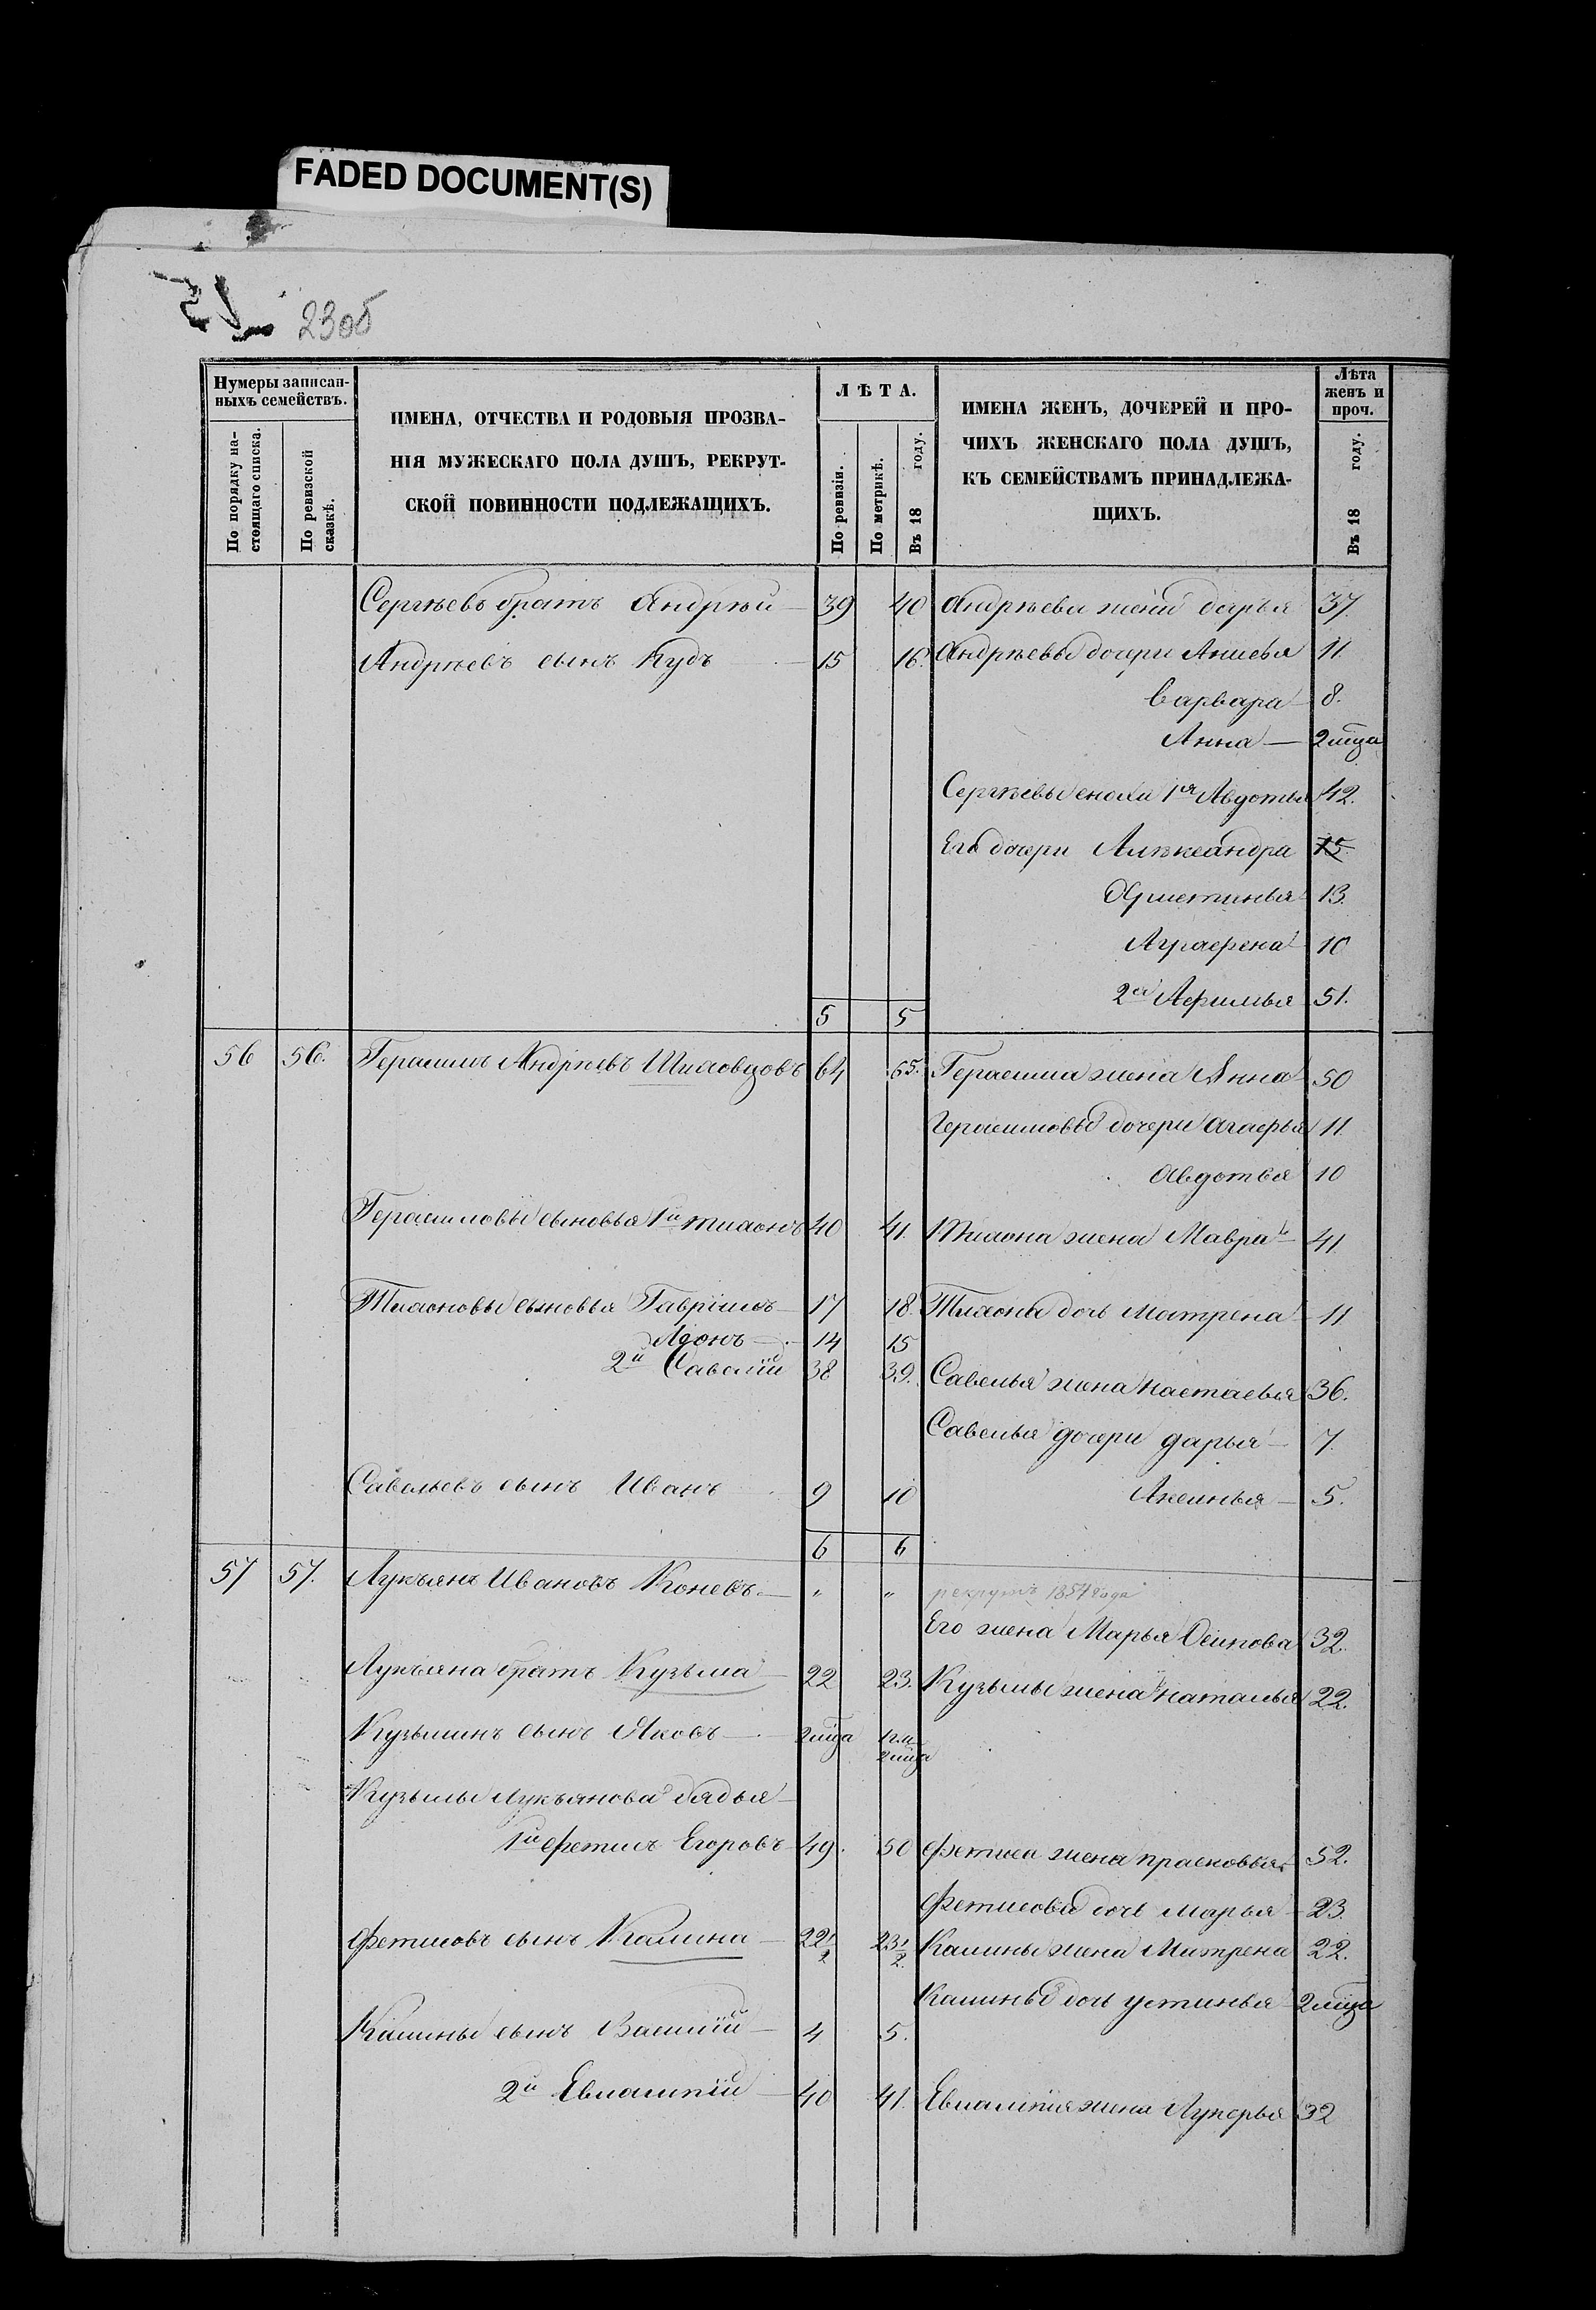 FADED DOCUMENT(S)
23об
Нумеры записан-
ныхъ семействъ.
По порядку на-
стоящаго списка.
По ревизской
сказкѣ.
ИМЕНА, ОТЧЕСТВА И РОДОВЫЯ ПРОЗВА-
НІЯ МУЖЕСКАГО ПОЛА ДУШЪ, РЕКРУТ-
СКОЙ ПОВИННОСТИ ПОДЛЕЖАЩИХЪ.
ЛѢТА.
По ревизіи.
По метрикѣ.
Въ 18 году.
ИМЕНА ЖЕНЪ, ДОЧЕРЕЙ И ПРО-
ЧИХЪ ЖЕНСКАГО ПОЛА ДУШЪ,
КЪ СЕМЕЙСТВАМЪ ПРИНАДЛЕЖА-
ЩИХЪ.
Лѣта
женъ и
проч.
Въ 18 году.
Сергѣевъ братъ Андрѣй 39 40 Андрѣева жена дарья 37.
Андрѣевъ сынъ 15 16. Андрѣевы дочери Анисья 11.
Варвара 8.
Анна 2 мѣца
Сергѣевы снохи 1я Авдотья 42.
Его дочери Алѣксандра 15.
Христинья 13.
Аграфена 10
2я Афимья 51.
5 5
56 56. Герасимъ Андрѣевъ 64 65. Герасима жена Анна 50
Герасимовы дочери агафья 11.
авдотья 10
Герасимовы сыновья 1й тихонъ 40 41. Тихона жена Мавра 41
Тихоновы сыновья Гаврiилъ 17 18. Тихона дочь матрена 11
14 15
2й Савелiй 38 39. Савелья жена настасья 36.
Савелья дочери дарья 7.
Савельевъ сынъ Иванъ 9 10 Аксинья 5.
6 6
57 57. Лукьянъ Ивановъ Коневъ „ „ рекрутъ 1854 года
Его жена Марья Осипова 32.
Лукьяна братъ Кузьма 22 23. Кузьмы жена наталья 22.
Кузьминъ сынъ Яковъ 2 мѣца 1 г. и
2 мѣца
Кузьмы Лукьянова дядья
1й Фетисъ Егоровъ 49. 50 Фетиса жена прасковья 52.
Фетисова дочь марья 23.
Фетисовъ сынъ Калина 22 1/2 23 1/2 Калины жена Матрена 22.
Калины дочь устинья 2 мѣца
Калины сынъ Василiй 4 5.
2й Евлампiй 40 41. Евлампiя жена Лукерья 32